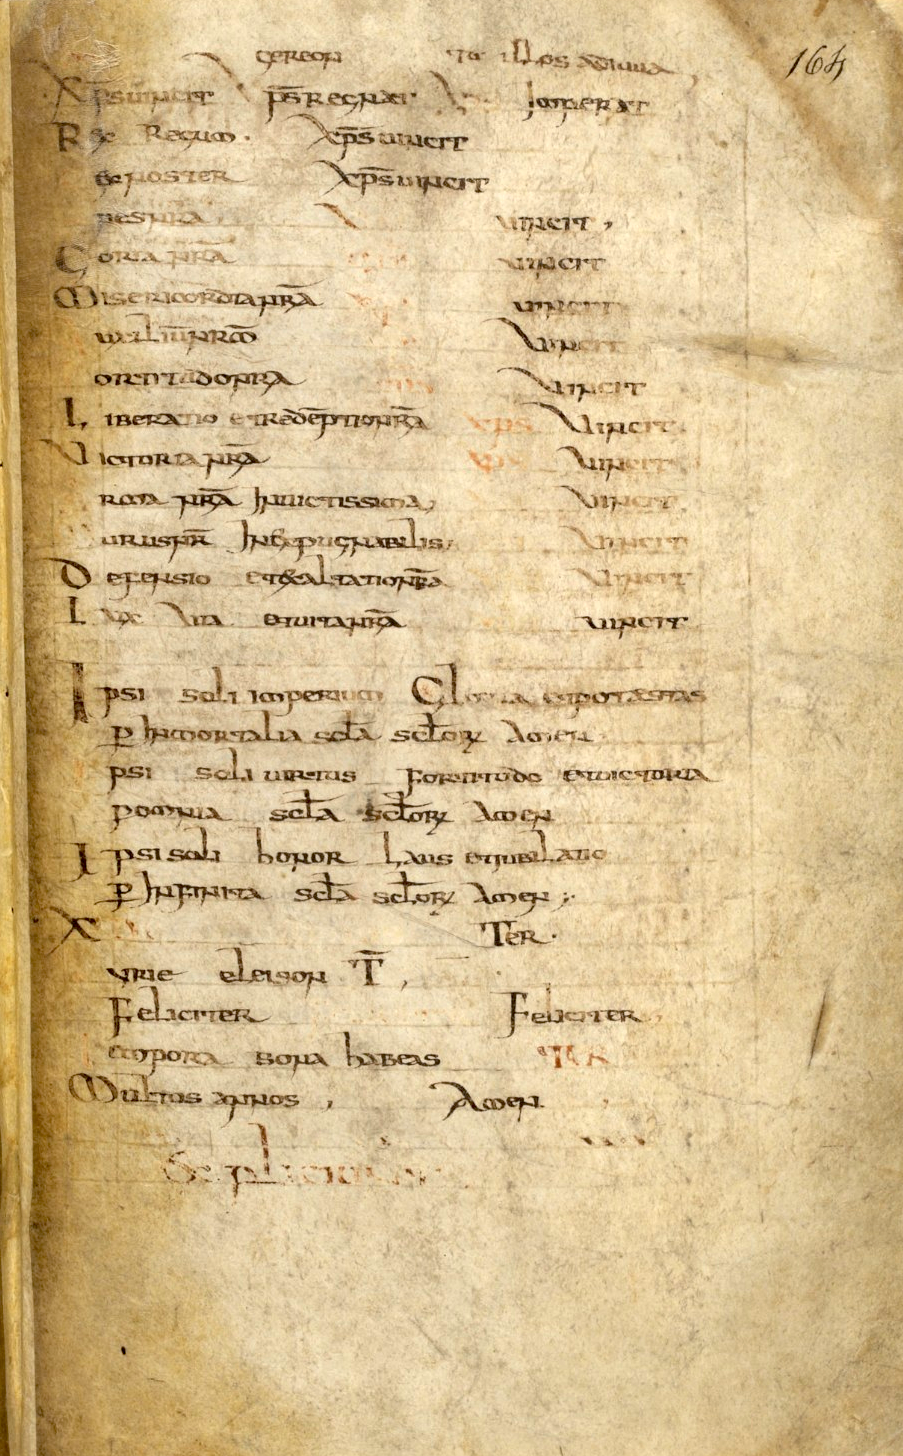 gereon tu illos adiuua 164
Xps̄ uincit xps̄ regnat Imperat
Rex Regum. Xps̄ uincit
noster Xps̄ uincit
nostra uincit,
Gloria nr̄a uincit
Misericordia nr̄a uincit
auxiliū nr̄m uincit
fortitudo nr̄a uincit
Liberatio et redēptio nr̄a xps uincit
Victoria nr̄a xps uincit
arma nr̄a Inuictissima uincit
murus nr̄ Inexpugnabilis uincit
Defensio et exaltatio nr̄a uincit
Lux Via et uita nr̄a uincit
Ipsi soli imperium Gloria et potestas
p̄ Inmortalia scła scłorꝝ Amen
psi soli uirtus Fortitudo et uictoria
p omnia scła scłorꝝ Amen
Ipsi soli honor Laus et iubilatio
p̄ Infinita scła scłorꝝ Amen
X Ter.
yrie eleison T̄
Feliciter Feliciter
empora bona habeas TR
Multos annos, Amen